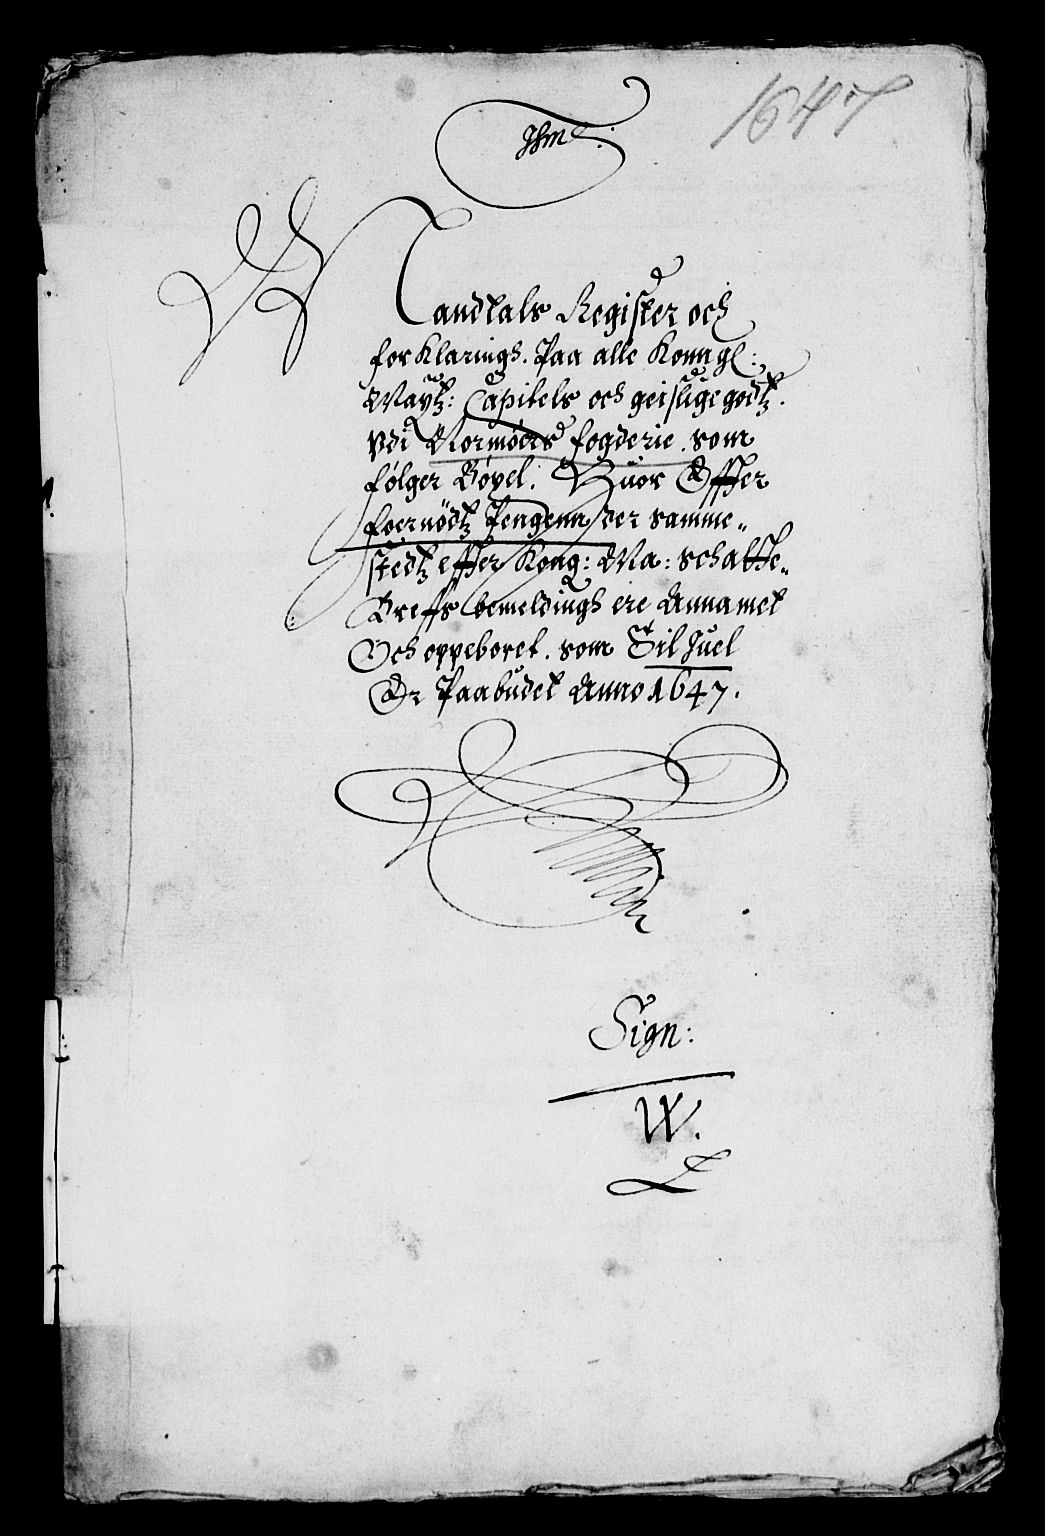 1647
Mandtals Register och
forKlaringh. Paa alle Konngl:
Maytz: Capitels och geistlige godtz.
Vdi Normøers fogderie. som
følger Røyel: Huor Effter
foernødtz Pengenn der samme„
stedtz effter Kong: Ma: schatte„
Breffs bemeldingh ere Annamet
Och oppeboret. som Til Juel
Er Paabudet Anno 1647.
Sign:
W.